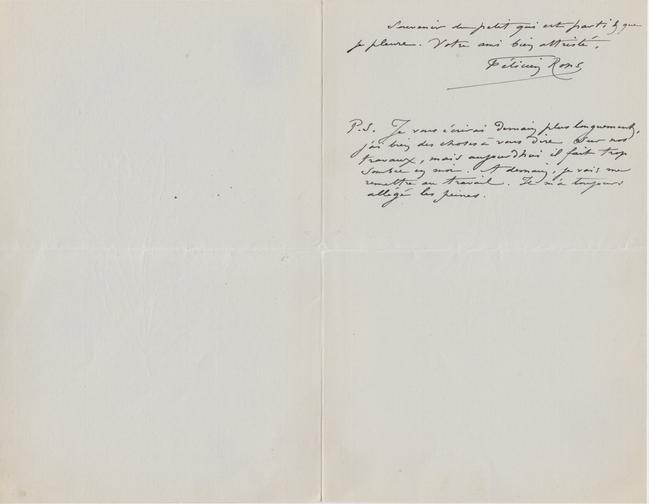 Souvenir du petit qui est parti & que
je pleure. Votre ami bien attristé,
Félicien Rops
P.S. Je vous écrirai demain plus longuement,
j'ai bien des choses à vous dire sur nos
travaux, mais aujourdhui il fait trop
sombre en moi. A demain, je vais me
remettre au travail. Il m'a toujours
allégé les peines.